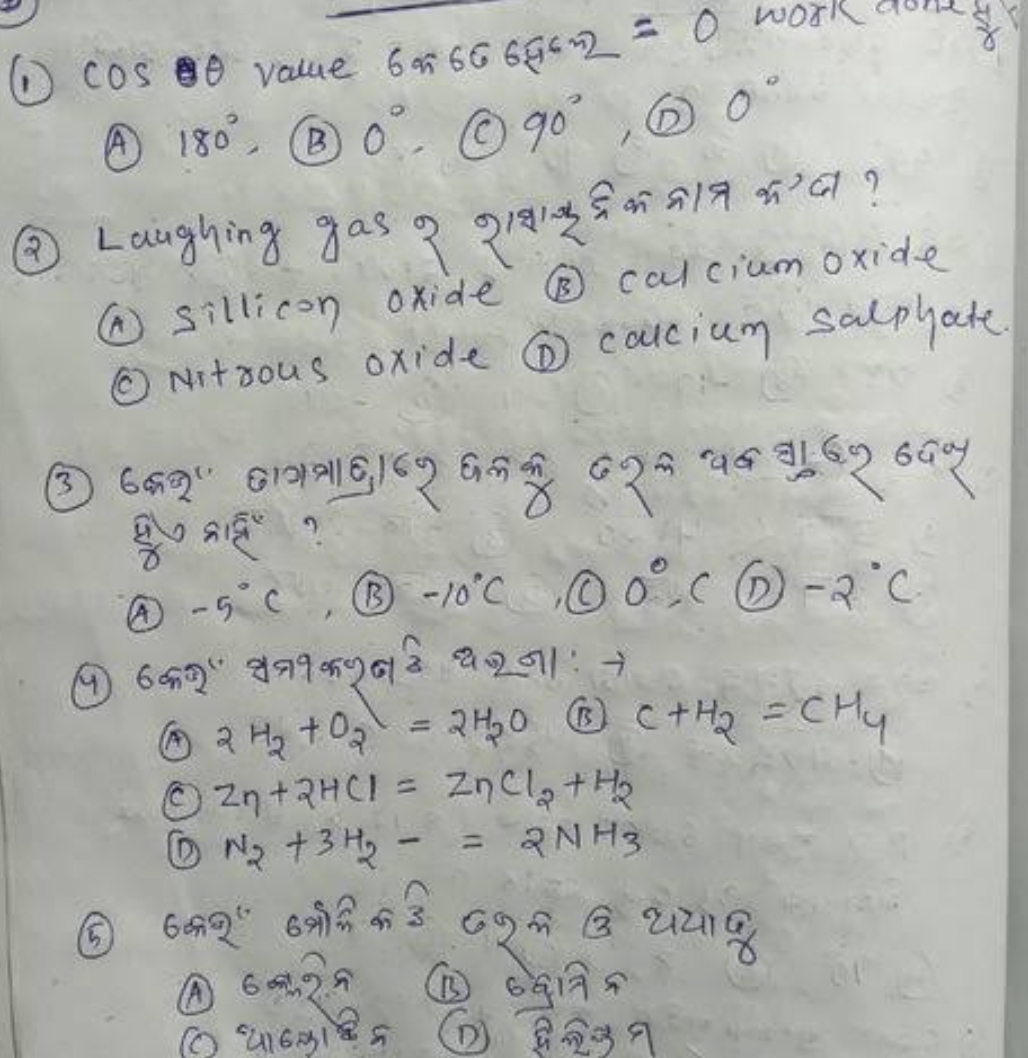 ① cos θ value କେତେ ହେଲେ = 0 work done ହୁଏ
Ⓐ 180°, Ⓑ 0°, Ⓒ 90°, Ⓓ 0°
② Laughing gas ର ରାସାୟନିକ ନାମ କ'ଣ ?
Ⓐ sillicon oxide Ⓑ calcium oxide
Ⓒ Nitrous oxide Ⓓ calcium salphate.
③ କେଉଁ ତାପମାତ୍ରାରେ ଜଳକୁ ତରଳ ଅବସ୍ଥାରେ ଦେଖି
ହୁଏ ନାହିଁ ?
Ⓐ -5°C, Ⓑ -10°C, Ⓒ 0°C Ⓓ -2°C
④ କେଉଁ ସମୀକରଣଟି ଅଲଗା : →
Ⓐ 2H₂ + O₂ = 2H₂O Ⓑ C + H₂ = CH₄
Ⓒ Zn + 2HCl = ZnCl₂ + H₂
Ⓓ N₂ + 3H₂ - = 2NH₃
⑤ କେଉଁ ମୌଳିକଟି ତରଳ ଓ ଅଧାତୁ
Ⓐ କ୍ଲୋରିନ Ⓑ ବ୍ରୋମିନ
Ⓒ ଆୟୋଡିନ Ⓓ ହିଲିୟମ